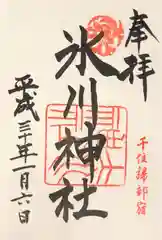 奉拝
千住掃部宿
氷川神社
平成三十年一月六日